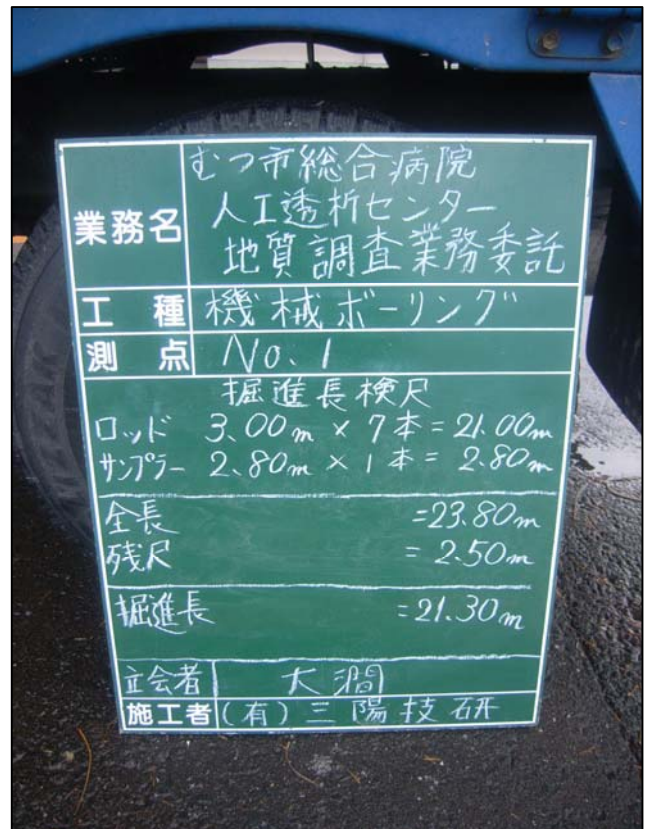 業務名
むつ市総合病院
人工透析センター
地質調査業務委託
工種 機械ボーリング
測点 No.1
掘進長検尺
ロッド 3.00m × 7本 = 21.00m
サンプラー 2.80m × 1本 = 2.80m
全長 =23.80m
残尺 = 2.50m
掘進長 =21.30m
立会者 大澗
施工者 (有)三陽技研